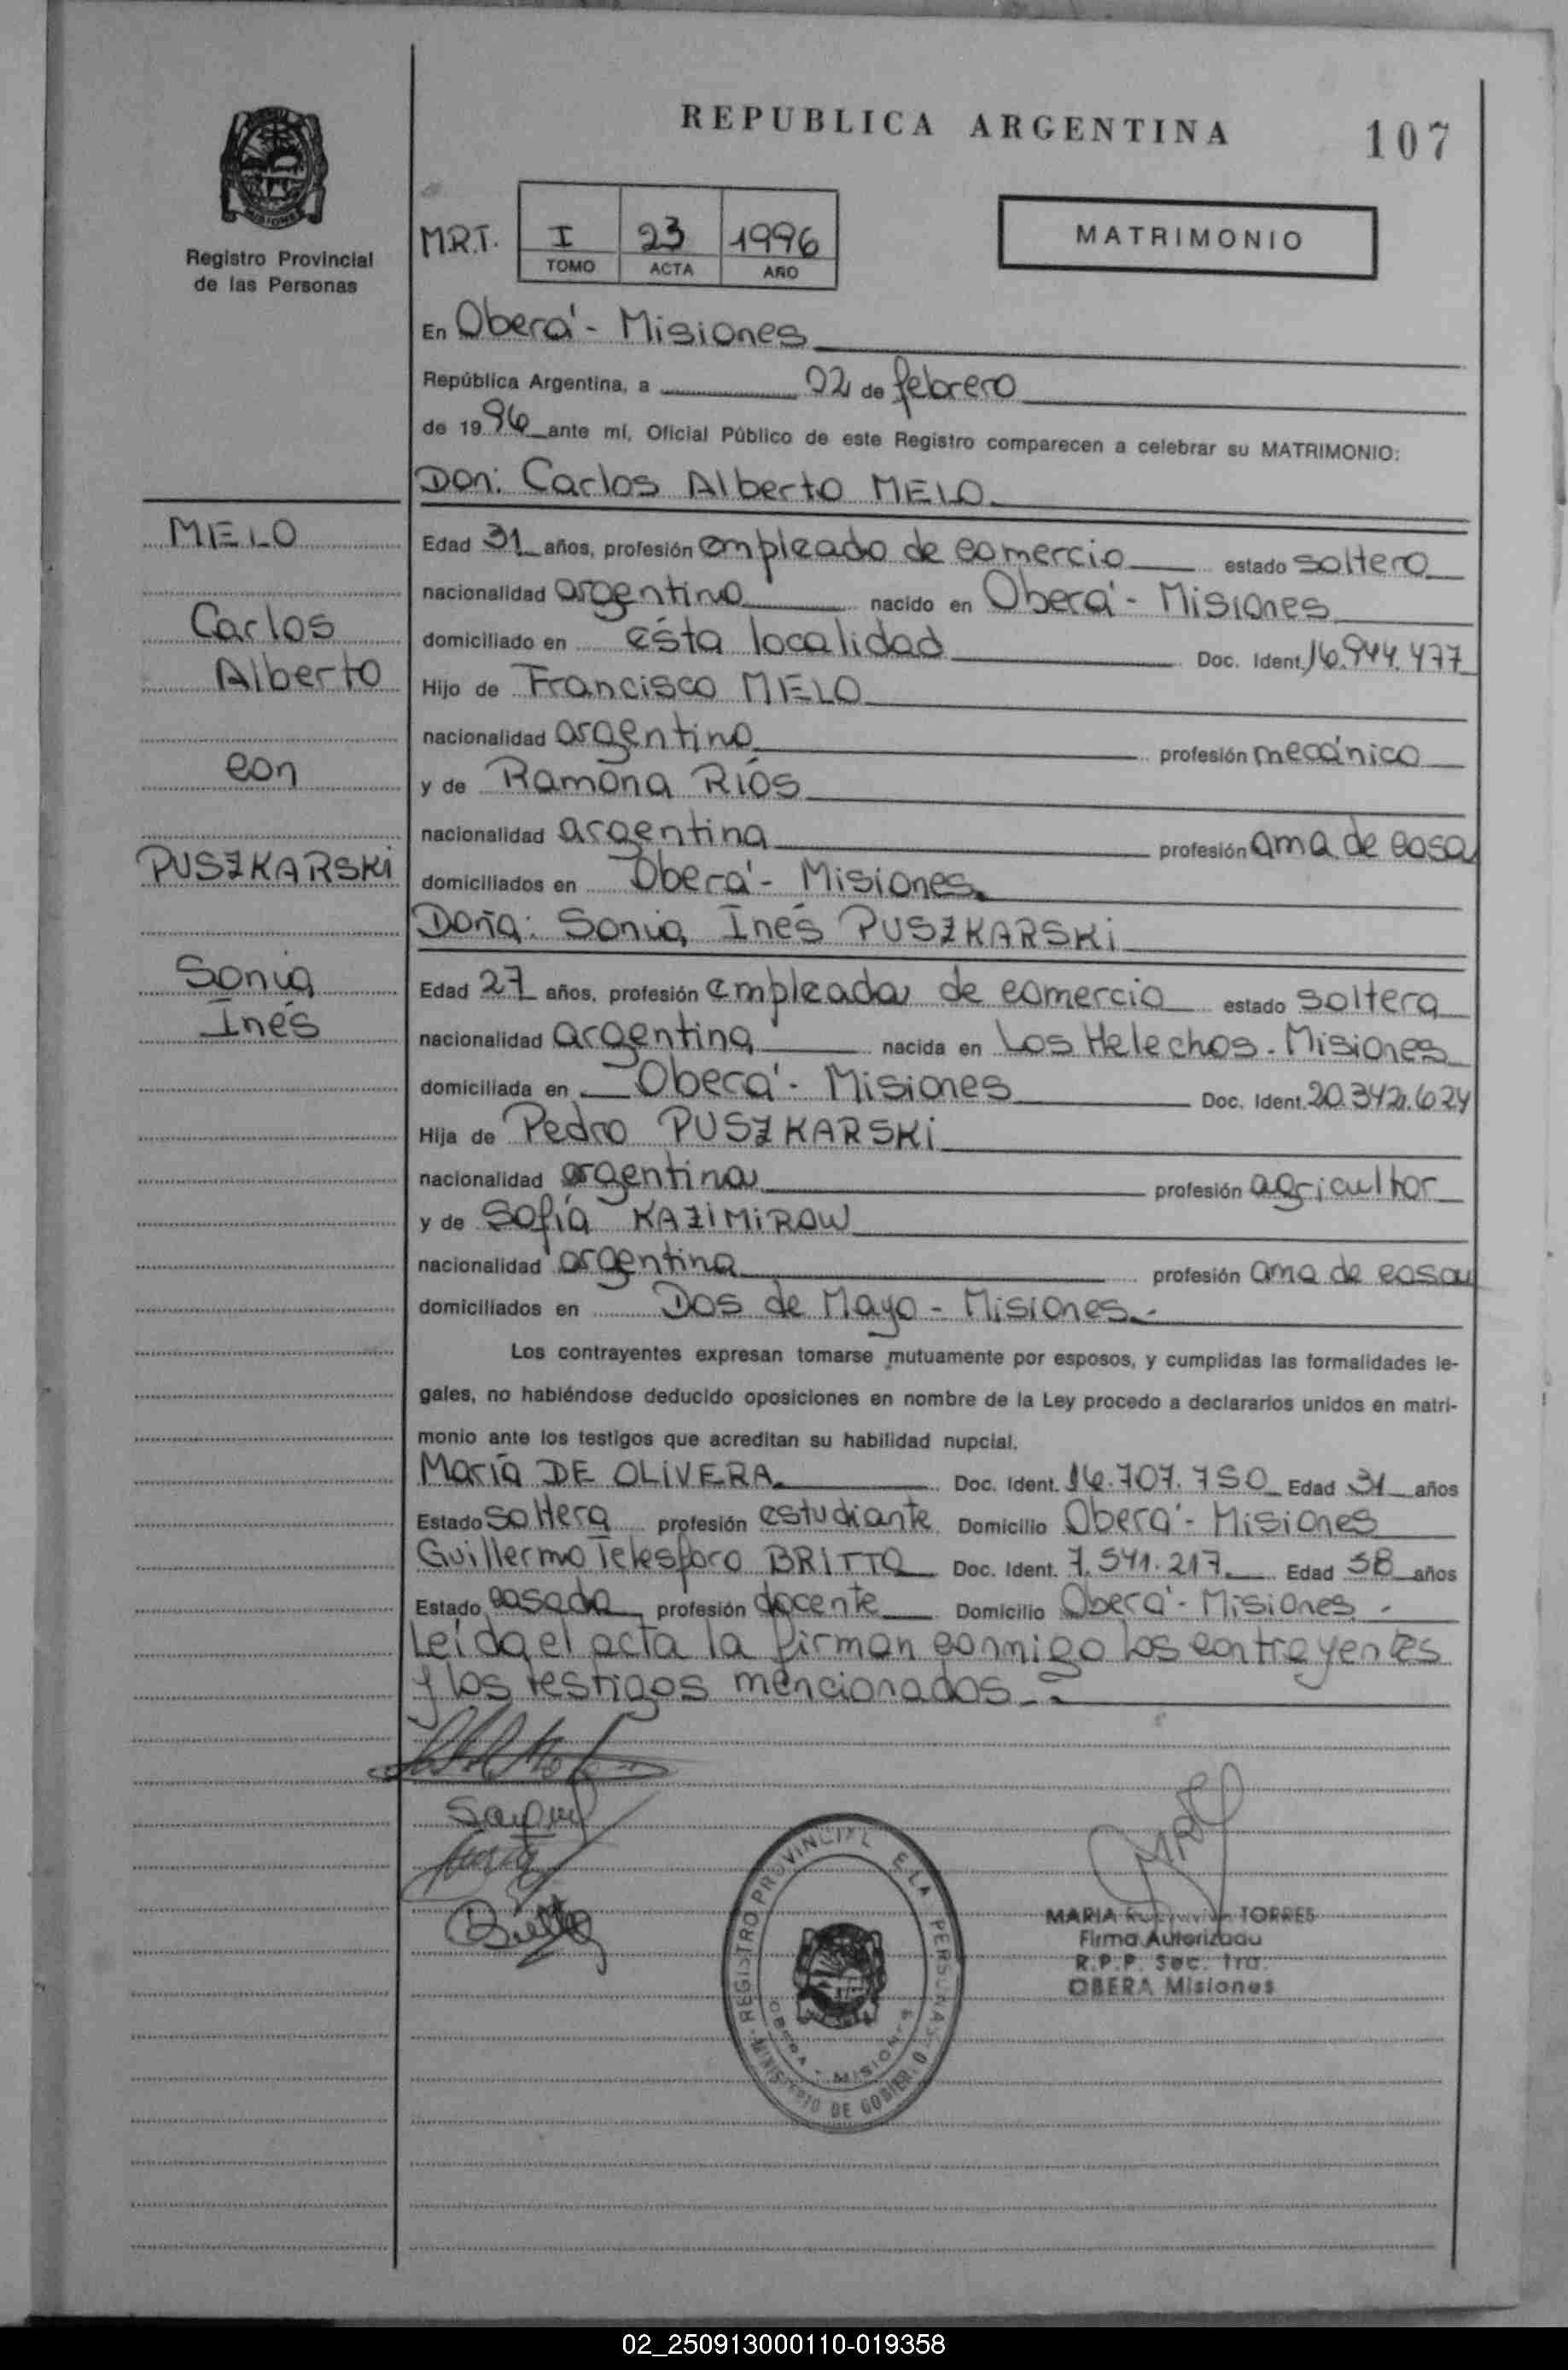 REPUBLICA ARGENTINA
107
Registro Provincial
de las Personas
M.R.T.
I
23
1996
TOMO
ACTA
AÑO
MATRIMONIO
En Oberá - Misiones
República Argentina, a 02 de febrero
de 1996 ante mí, Oficial Público de este Registro comparecen a celebrar su MATRIMONIO:
Don: Carlos Alberto MELO
MELO
Carlos
Alberto
con
PUSZKARSKi
Sonia
Inés
Edad 31 años, profesión empleado de comercio estado soltero
nacionalidad argentino nacido en Oberá - Misiones
domiciliado en ésta localidad Doc. Ident. 16.944.477
Hijo de Francisco MELO
nacionalidad argentino profesión mecánico
y de Ramona Ríos
nacionalidad argentina profesión ama de casa
domiciliados en Oberá - Misiones.
Doña: Sonia Inés PUSZKARSKi
Edad 27 años, profesión empleada de comercio estado soltera
nacionalidad argentina nacida en Los Helechos - Misiones
domiciliada en Oberá - Misiones Doc. Ident. 20.342.624
Hija de Pedro PUSZKARSKi
nacionalidad argentina profesión agricultor
y de Sofía KAZIMIROW
nacionalidad argentina profesión ama de casa
domiciliados en Dos de Mayo - Misiones.-
Los contrayentes expresan tomarse mutuamente por esposos, y cumplidas las formalidades le-
gales, no habiéndose deducido oposiciones en nombre de la Ley procedo a declararlos unidos en matri-
monio ante los testigos que acreditan su habilidad nupcial.
María DE OLIVERA. Doc. Ident. 16.707.750 Edad 31 años
Estado soltera profesión estudiante Domicilio Oberá - Misiones
Guillermo Telesforo BRITTO Doc. Ident. 7.541.217 Edad 58 años
Estado casado profesión docente Domicilio Oberá - Misiones.-
Leída el acta la firman conmigo los contrayentes
y los testigos mencionados.-
REGISTRO PROVINCIAL E LA PERSONAS
MINISTERIO DE GOBIERNO
OBERA - MISIONES
MARIA TORRES
Firma Autorizada
R.P.P. Sec. 1ra.
OBERA Misiones
02_250913000110-019358